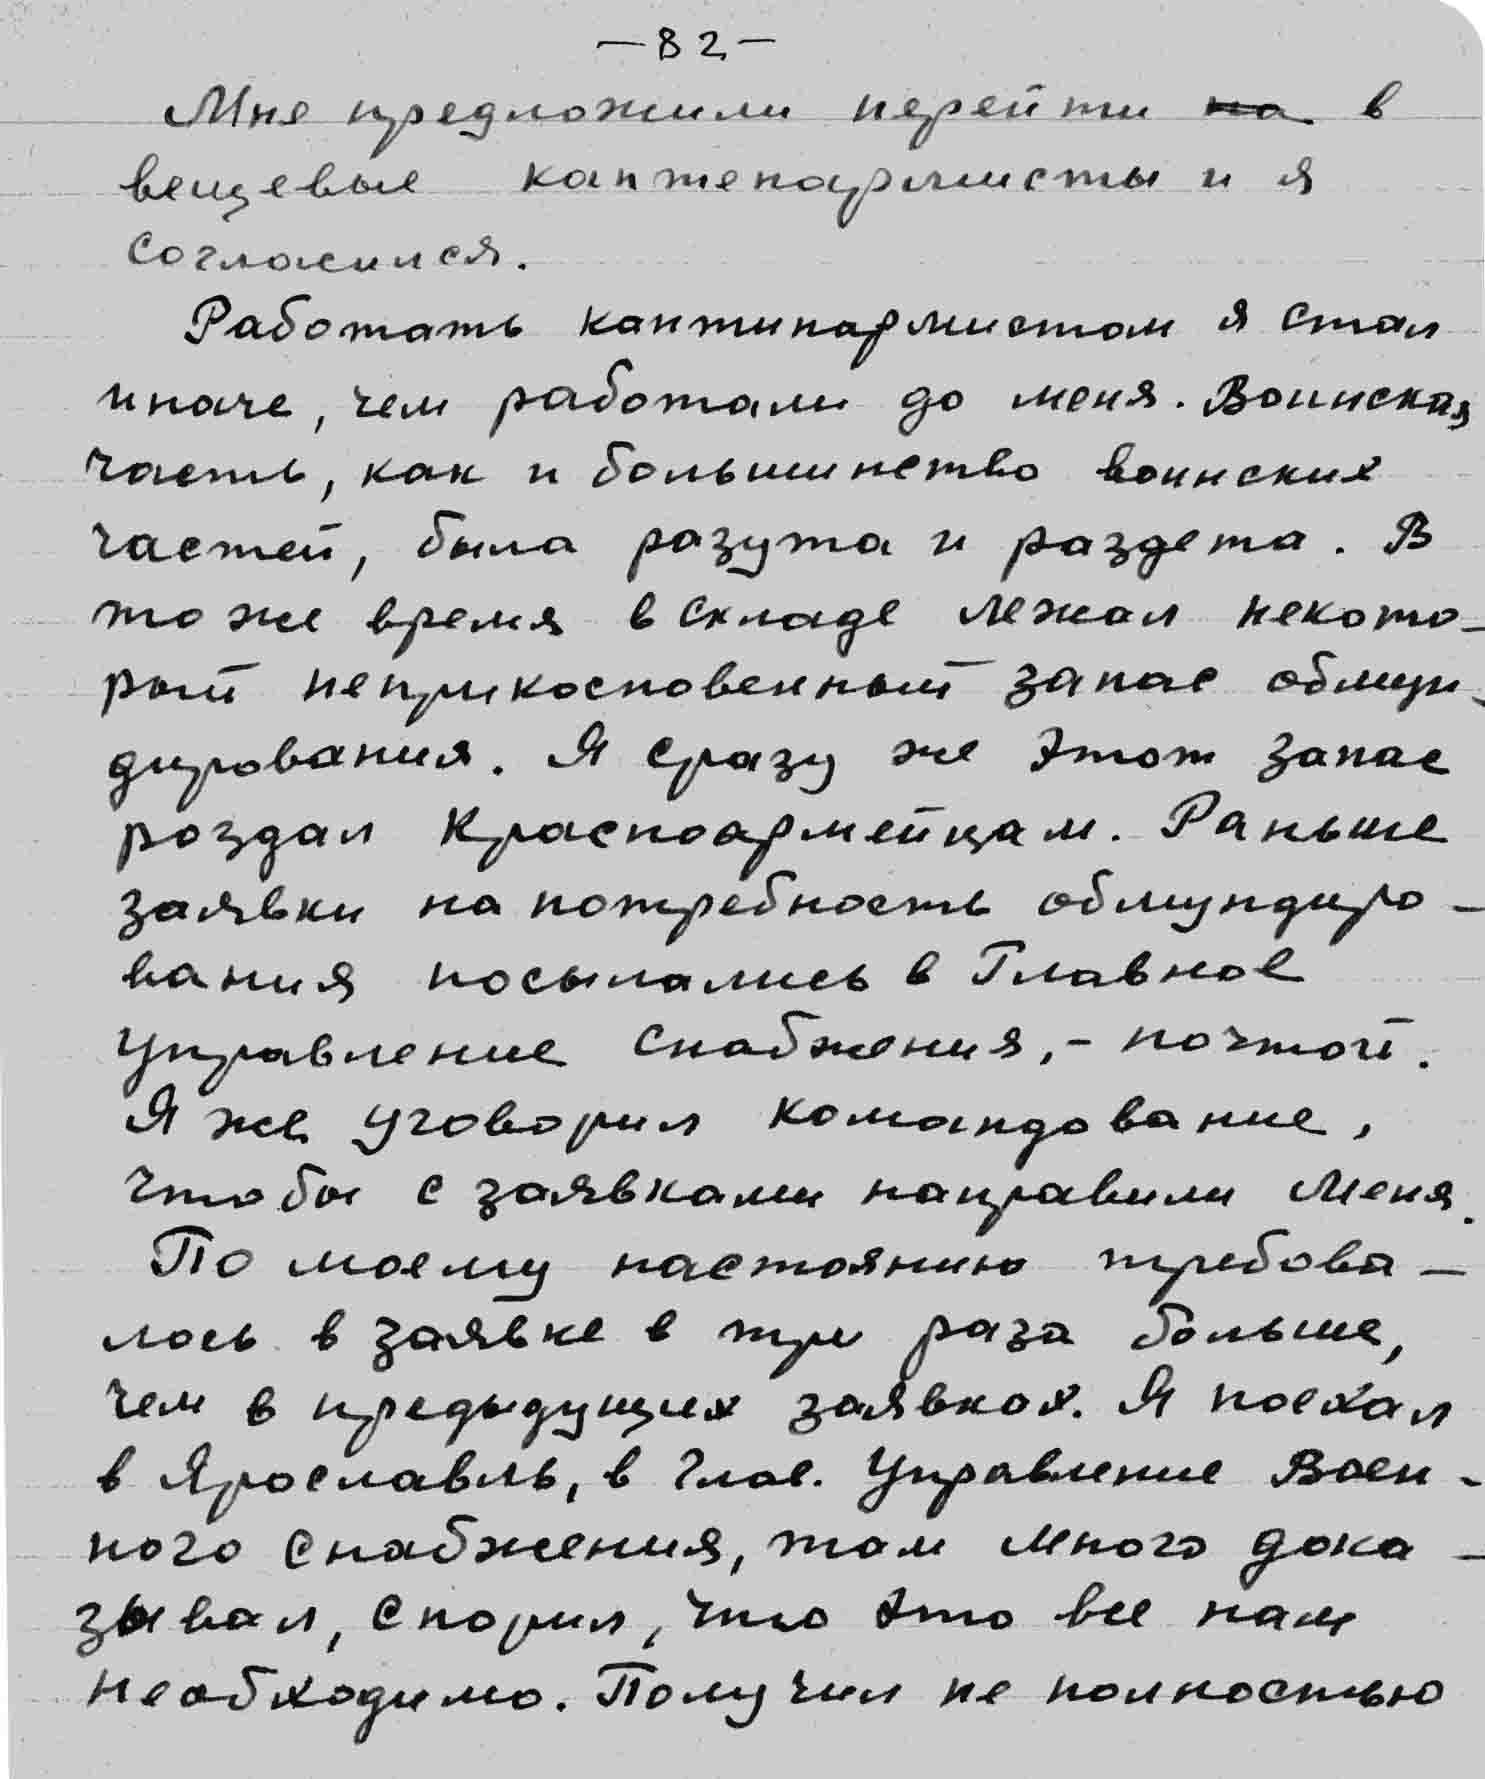 —82—
Мне предложили перейти на в
вещевые каптенармисты и я
согласился.
Работать каптинармистом я стал
иначе, чем работали до меня. Воинская
часть, как и большинство воинских
частей, была разута и раздета. В
то же время в складе лежал некото-
рый неприкосновенный запас обмун-
дирования. Я сразу же этот запас
роздал красноармейцам. Раньше
заявки на потребность обмундиро-
вания посылались в Главное
управление снабжения, - почтой.
Я же уговорил командование,
чтобы с заявками направили меня.
По моему настоянию требова-
лось в заявке в три раза больше,
чем в предыдущих заявках. Я поехал
в Ярославль, в Глав. Управление Воен-
ного снабжения, там много дока-
зывал, спорил, что это все нам
необходимо. Получил не полностью